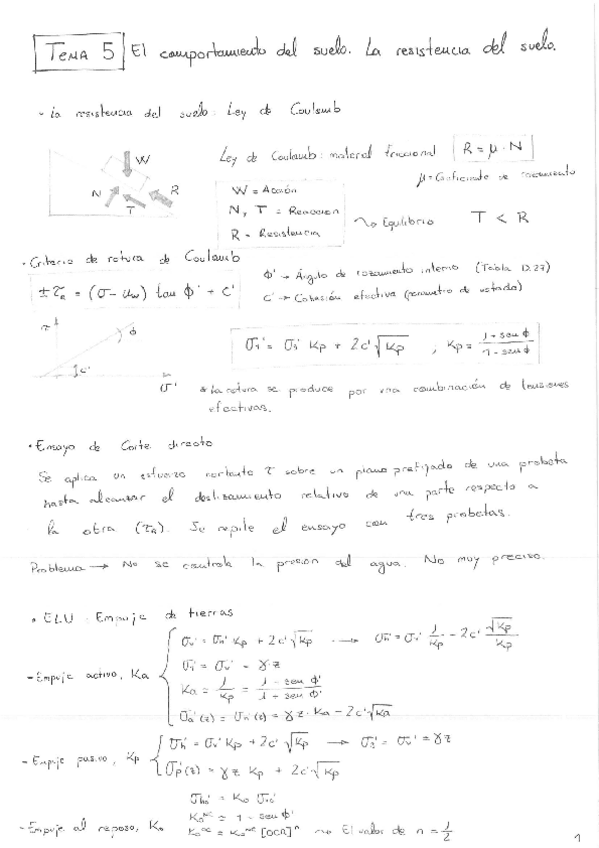 TEMA 5 El comportamiento del suelo. La resistencia del suelo.
- La resistencia del suelo: Ley de Coulomb
Ley de Coulomb: material friccional R = μ · N
μ = Coeficiente de rozamiento
W
N
T
R
W = Acción
N, T = Reacción
R = Resistencia
Equilibrio T < R
· Criterio de rotura de Coulomb
ϕ' → Ángulo de rozamiento interno (Tabla D.27)
± τR = (σ - uw) tan ϕ' + c'
c' → Cohesión efectiva (parámetro de estado)
τ
ϕ
c'
σ'
σ1' = σ3' Kp + 2c'√Kp , Kp =
* La rotura se produce por una combinación de tensiones
efectivas.
· Ensayo de Corte directo
Se aplica un esfuerzo cortante τ sobre un plano prefijado de una probeta
hasta alcanzar el deslizamiento relativo de una parte respecto a
la otra (τR). Se repite el ensayo con tres probetas.
Problema → No se controla la presión del agua. No muy preciso.
· ELU: Empuje de tierras
- Empuje activo, Ka
σv' = σh' Kp + 2c'√Kp → σh' = σv' 1/Kp - 2c' √Kp/Kp
σ1' = σv' = γ·z
Ka = 1/Kp = (1 - sen ϕ')/(1 + sen ϕ')
σa'(z) = σh'(z) = γz·Ka - 2c'√Ka
- Empuje pasivo, Kp
σh' = σv' Kp + 2c'√Kp → σ3' = σv' = γz
σp'(z) = γz Kp + 2c'√Kp
- Empuje al reposo, K0
σh0' = K0 σv0'
K0ⁿᶜ = 1 - sen ϕ'
[OCR]ⁿ El valor de n = 1/2
1